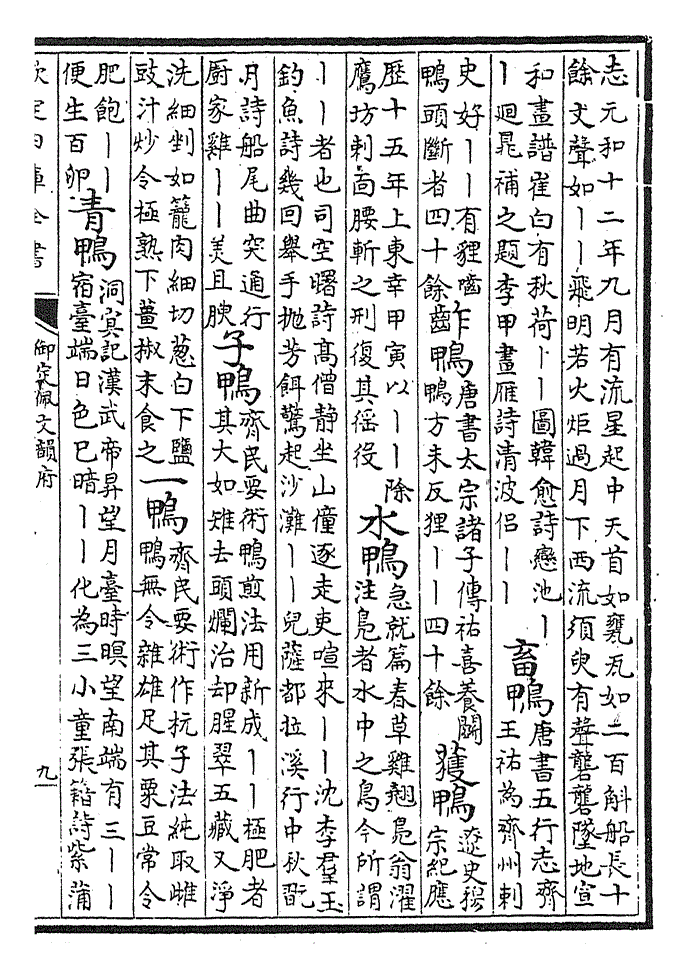 志元和十二年九月有流星起中天首如甕瓦如二百斛船長十
餘丈聲如〡〡飛明若火炬過月下西流須臾有聲礱礱墜地宣
和畫譜崔白有秋荷〡〡圖韓愈詩戀池〡
〡迴晁補之題李甲畫雁詩清波侶〡〡
畜鴨
唐書五行志齊
王祐為齊州刺
史好〡〡有貍嚙
鴨頭斷者四十餘
齚鴨
唐書太宗諸子傳祐喜養鬭
鴨方未反狸〡〡四十餘
獲鴨
遼史穆
宗紀應
歷十五年上東幸甲寅以〡〡除
鷹坊刺面腰斬之刑復其徭役
水鴨
急就篇春草雞翹鳧翁濯
注鳧者水中之鳥今所謂
〡〡者也司空曙詩高僧靜坐山僮逐走吏喧來〡〡沈李羣玉
釣魚詩幾回舉手拋芳餌驚起沙灘〡〡兒薩都拉溪行中秋翫
月詩船尾曲突通行
廚家雞〡〡美且腴
子鴨
齊民要術鴨煎法用新成〡〡極肥者
其大如雉去頭爛治却腥翠五藏又淨
洗細剉如籠肉細切葱白下鹽
豉汁炒令極熟下薑椒末食之
一鴨
齊民要術作杬子法純取雌
鴨無令雜雄足其粟豆常令
肥飽〡〡
便生百卵
青鴨
洞冥記漢武帝昇望月臺時暝望南端有三〡〡
宿臺端日色已暗〡〡化為三小童張籍詩紫蒲
欽定四庫全書
御定佩文韻府
九